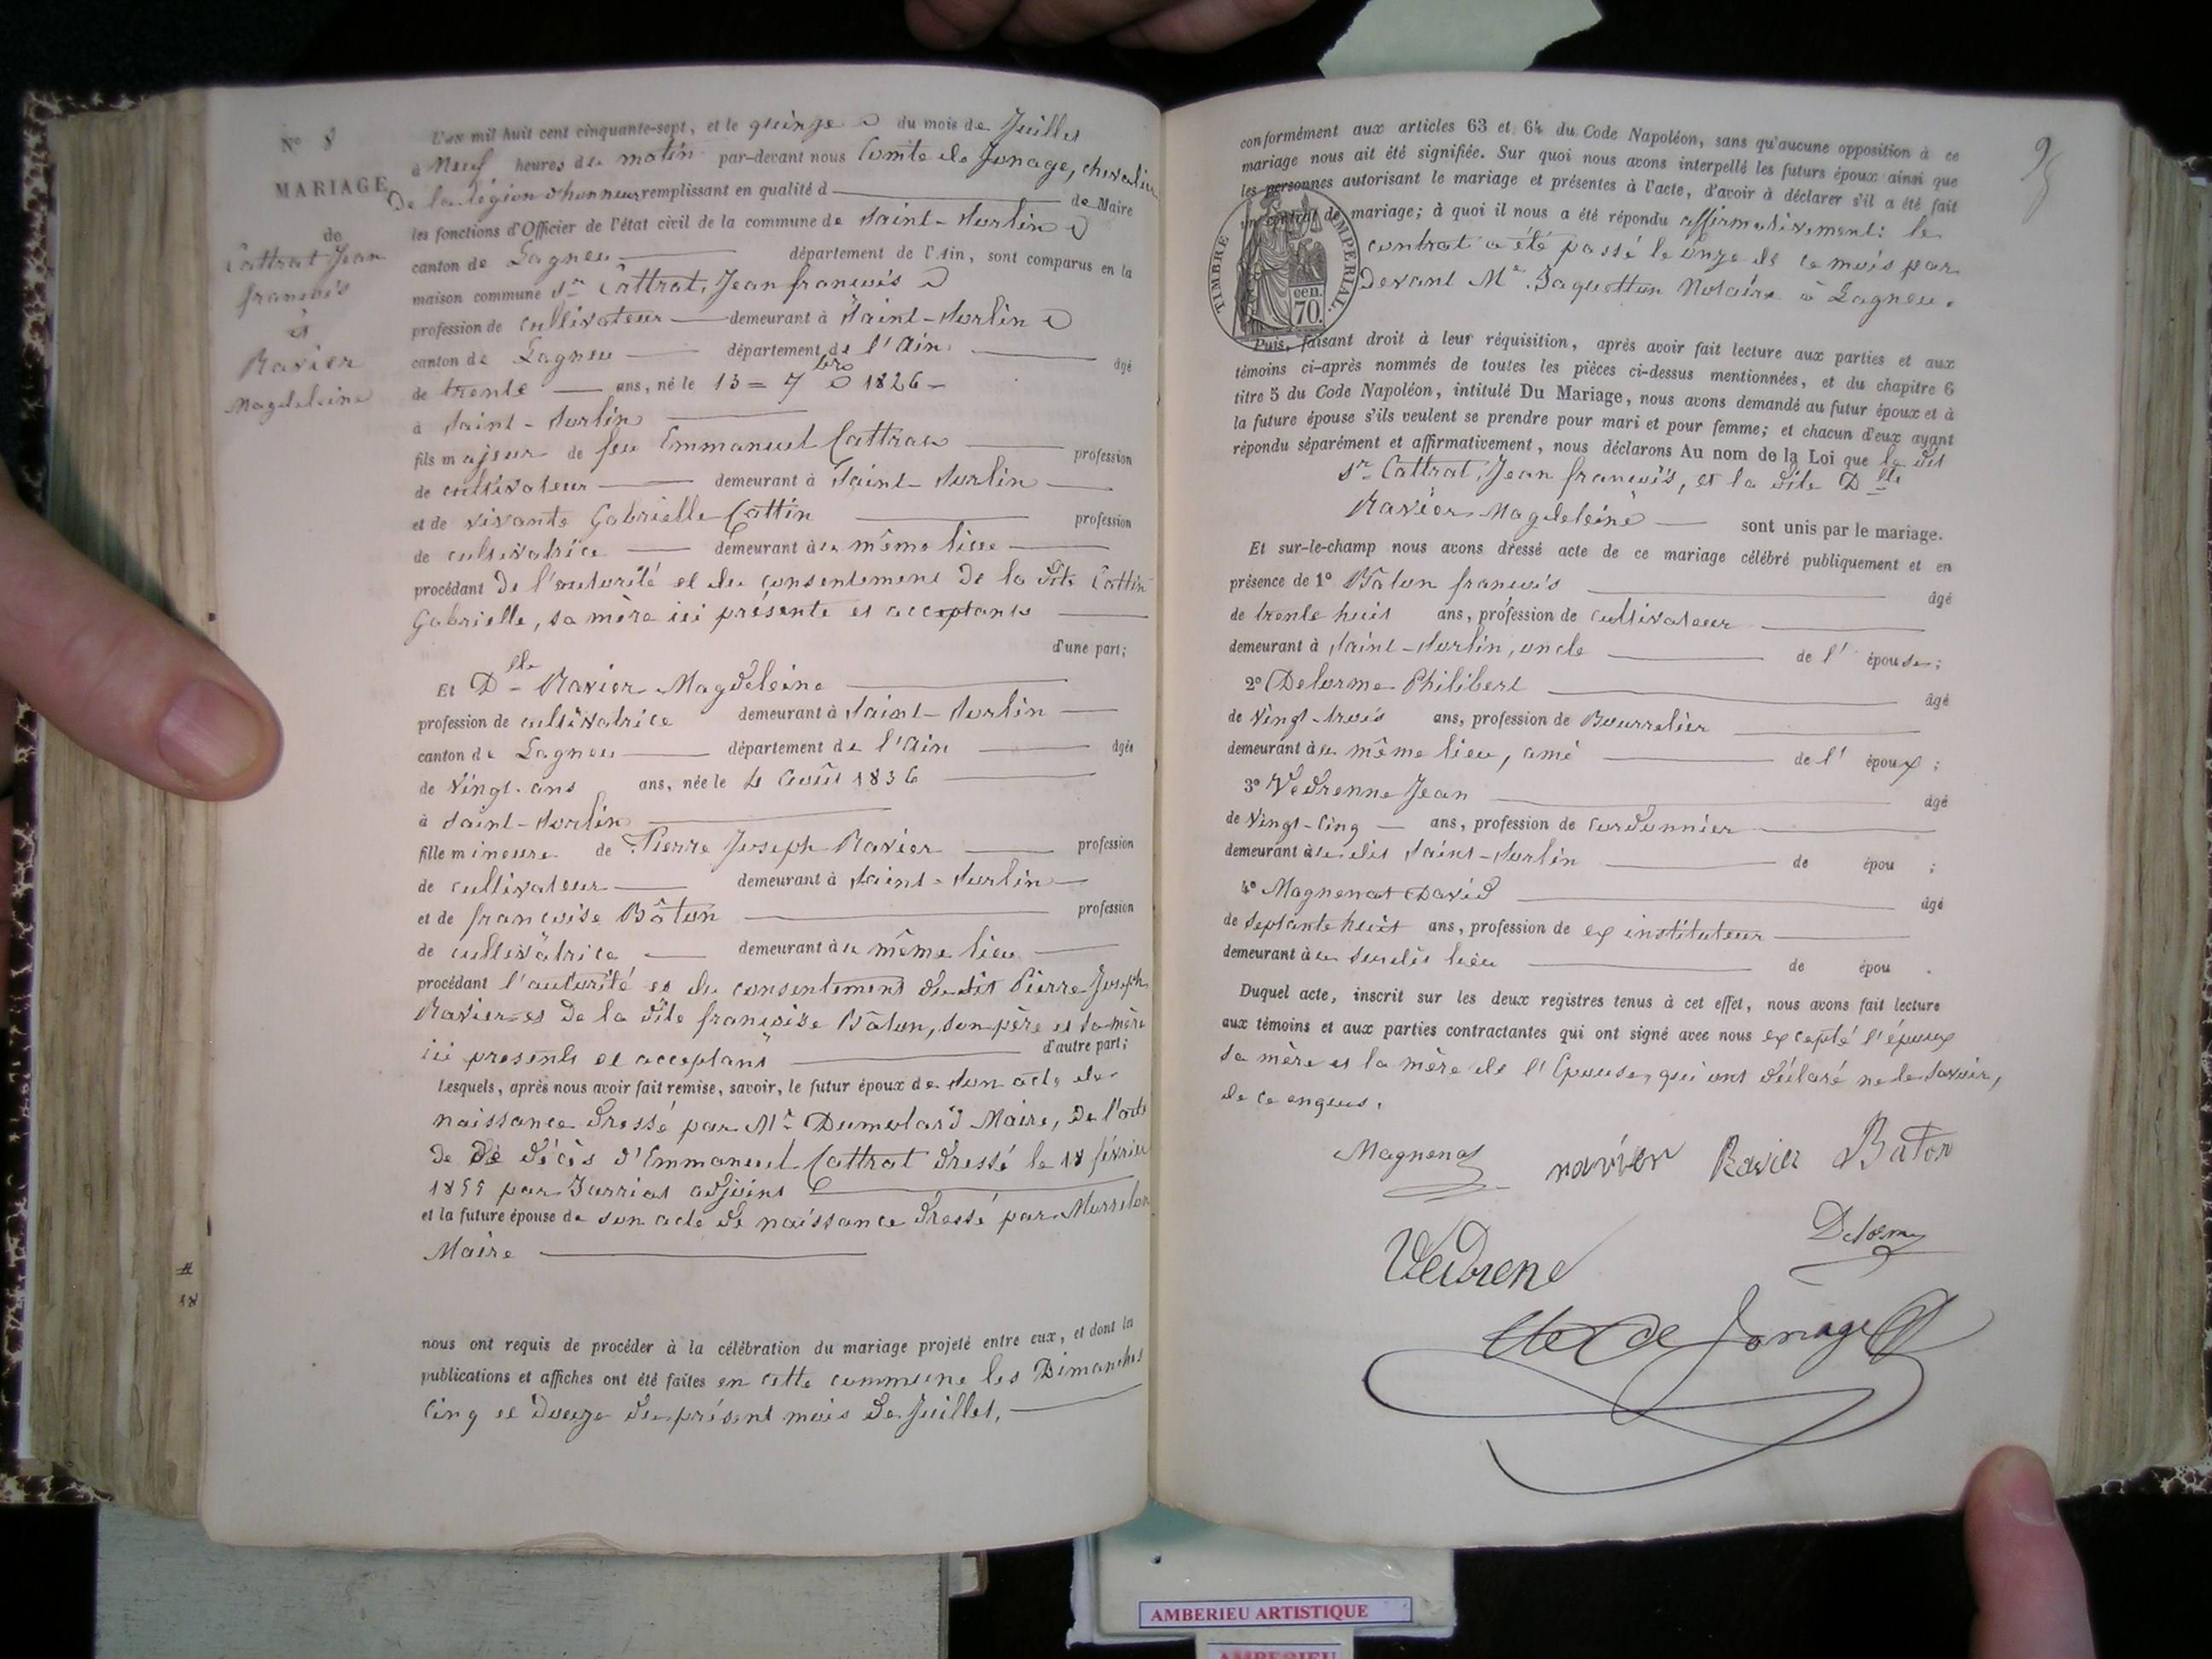 N° 8
MARIAGE
de
Cattrat Jean
françois
et
Ravier
Magdeleine
L'an mil huit cent cinquante-sept, et le quinze du mois de Juillet
à Neuf heures du matin par-devant nous Comte de Jonage, chevalier
De la légion d'honneur remplissant en qualité d de Maire
les fonctions d'Officier de l'état civil de la commune de Saint-Sorlin
canton de Lagneu département de l'Ain, sont comparus en la
maison commune Sr Cattrat, Jean françois
profession de cultivateur demeurant à Saint-Sorlin
canton de Lagneu département de l'Ain. âgé
de trente ans, né le 13 = 7bre 1826
à Saint-Sorlin
fils majeur de feu Emmanuel Cattrat profession
de cultivateur demeurant à Saint-Sorlin
et de vivante Gabrielle Cattin profession
de cultivatrice demeurant au même lieu
procédant De l'autorité et du consentement De la dite Cattin
Gabrielle, sa mère ici présente et acceptante
d'une part;
Et Dlle Ravier Magdeleine
profession de cultivatrice demeurant à Saint-Sorlin
canton de Lagneu département de l'Ain âgée
de Vingt-ans ans, née le 4 Août 1836
à Saint-Sorlin
fille mineure de Pierre Joseph Ravier profession
de cultivateur demeurant à Saint-Sorlin
et de françoise Bâton profession
de cultivatrice demeurant au même lieu
procédant l'autorité et du consentement du dit Pierre Joseph
Ravier et De la dite françoise Bâton, son père et sa mère
ici presents et acceptans d'autre part;
Lesquels, après nous avoir fait remise, savoir, le futur époux de son acte de
naissance dressé par Mr Dumolard Maire, De l'acte
de De décès d'Emmanuel Cattrat dressé le 18 février
1855 par Jarriat adjoint
et la future épouse de son acte de naissance dressé par
Maire
nous ont requis de procéder à la célébration du mariage projeté entre eux, et dont la
publications et affiches ont été faites en cette commune les Dimanches
Cinq et douze du présent mois De Juillet.
conformément aux articles 63 et 64 du Code Napoléon, sans qu'aucune opposition à ce
mariage nous ait été signifiée. Sur quoi nous avons interpellé les futurs époux ainsi que
les personnes autorisant le mariage et présentes à l'acte, d'avoir à déclarer s'il a été fait
un contrat de mariage; à quoi il nous a été répondu affirmativement: le
contrat a été passé le onze de ce mois par
Devant Me Jaquetton Notaire à Lagneu.
TIMBRE IMPÉRIAL.
cen.
70.
Puis, faisant droit à leur réquisition, après avoir fait lecture aux parties et aux
témoins ci-après nommés de toutes les pièces ci-dessus mentionnées, et du chapitre 6
titre 5 du Code Napoléon, intitulé Du Mariage, nous avons demandé au futur époux et à
la future épouse s'ils veulent se prendre pour mari et pour femme; et chacun d'eux ayant
répondu séparément et affirmativement, nous déclarons Au nom de la Loi que le dit
Sr Cattrat, Jean françois, et la dite Dlle
Ravier Magdeleine sont unis par le mariage.
Et sur-le-champ nous avons dressé acte de ce mariage célébré publiquement et en
présence de 1° Bâton françois âgé
de trente huit ans, profession de Cultivateur
demeurant à Saint-Sorlin, oncle de l' épouse;
2° Delorme Philibert âgé
de Vingt-trois ans, profession de Bourrelier
demeurant au même lieu, ami de l' époux;
3° Vedrenne Jean âgé
de Vingt-Cinq ans, profession de Cordonnier
demeurant au dit Saint-Sorlin de épou ;
4° Magnenat David âgé
de Septante huit ans, profession de ex instituteur
demeurant au susdit lieu de épou .
Duquel acte, inscrit sur les deux registres tenus à cet effet, nous avons fait lecture
aux témoins et aux parties contractantes qui ont signé avec nous excepté l'époux
sa mère et la mère de l'Epouse, qui ont déclaré ne le savoir,
de ce enquis.
Magnenat ravier Ravier Baton
Vedrene Delorme
Cte de Jonage
AMBERIEU ARTISTIQUE
AMBERIEU